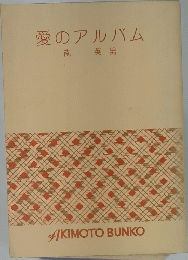 愛のアルバム
AKIMOTO BUNKO